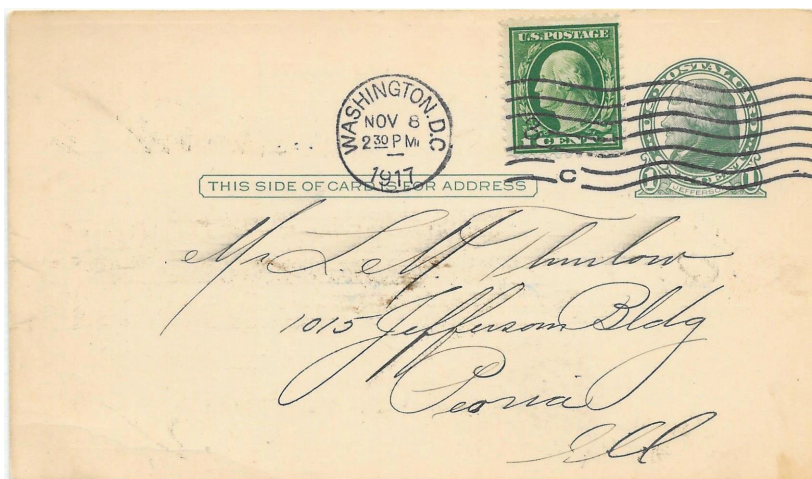 U.S. POSTAGE
1 CENT 1
WASHINGTON, D.C.
NOV 8
2 30 PM
1917
C
JEFFERSON
THIS SIDE OF CARD IS FOR ADDRESS
Mr L. M. Thurlow
1015 Jefferson Bldg
Peoria
Ill